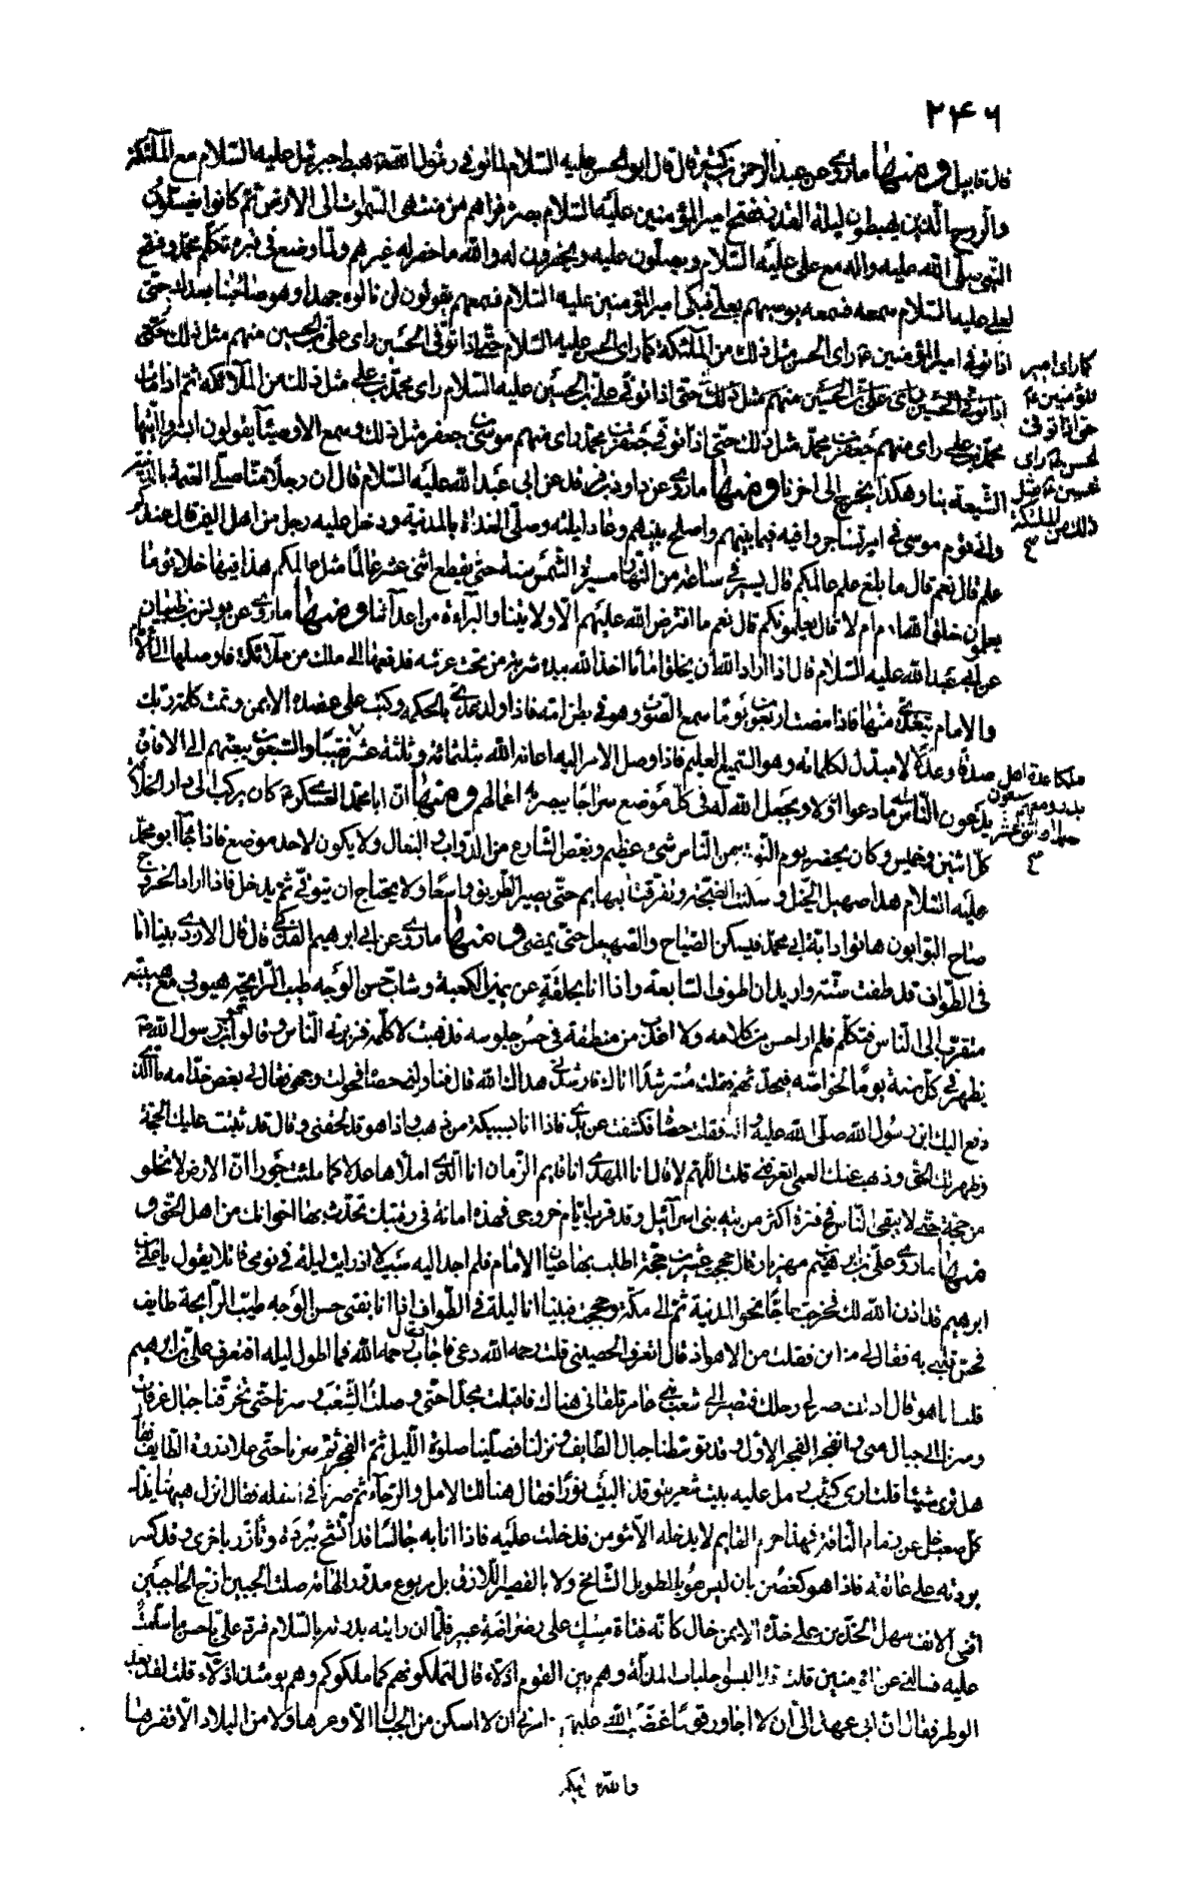 ٢٤٦
قال قابيل ومنها ما روي عن عبد الرحمن بن كثير قال قال ابو الحسن عليه السلام لما توفي رسول الله هبط جبرئيل عليه السلام مع الملئكة
والروح الذين يهبطون ليلة القدر ففتح امير المؤمنين عليه السلام بصره فراهم من منتهى السموات الى الارض ثم كانوا يغسلون
النبي صلى الله عليه واله مع علي عليه السلام ويصلون عليه ويحفرون له والله ما حفر له غيرهم ولما وضع في قبره تكلم محمد وفتح
لعلي عليه السلام سمعه فسمعه يوصيهم بعلي فبكى امير المؤمنين عليه السلام فسمعهم يقولون لن نالوه جهدا وهو صاحبنا بعدك حتى
اذا توفي امير المؤمنين راى الحسن مثل ذلك من الملئكة كما راى الحسن عليه السلام حتى اذا توفي الحسين راى علي بن الحسين منهم مثل ذلك حتى
كما راى امير
المؤمنين ع
حتى اذا توفي
الحسن راى
الحسين مثل
ذلك من الملئكة
اذا توفي الحسين راى علي بن الحسين منهم مثل ذلك حتى اذا توفي علي بن الحسين عليه السلام راى محمد بن علي مثل ذلك من الملائكة ثم اذا مات
محمد بن علي راى منهم جعفر بن محمد مثل ذلك حتى اذا توفي جعفر بن محمد راى منهم موسى بن جعفر مثل ذلك وسمع الاوصيآء يقولون ابشروا ايتها
الشيعة بنا وهكذا يخرج الى اخرنا ومنها ما روي عن داود بن فرقد عن ابي عبد الله عليه السلام قال ان رجلا منا صلى العتمة بالمدينة
واتى قوم موسى في امر تشاجروا فيه فيما بينهم واصلح بينهم وعاد ليلته وصلى الغداة بالمدينة ودخل عليه رجل من اهل اليمن قال عندكم
علم قال نعم قال ما بلغ علم عالمكم قال يسير في ساعة من النهار مسيرة الشمس سنة حتى يقطع اثنى عشر عالما مثل عالمكم هذا فيها خلايق ما
يعلمون خلق الله ادم ام لا قال يعلمونكم قال نعم ما افترض الله عليهم الا ولايتنا والبراءة من اعدآئنا ومنها ما روي عن يونس بن ظبيان
عن ابي عبد الله عليه السلام قال اذا اراد الله ان يخلق اماما اخذ الله بيده شربة من تحت عرشه فدفعها الى ملك من ملائكته فاوصلها الى الامام
والامام بعده منها فاذا مضت اربعون يوما سمع الصوت وهو في بطن امه فاذا ولد غذي بالحكمة وكتب على عضده الايمن وتمت كلمة ربك
صدقا وعدلا لا مبدل لكلماته وهو السميع العليم فاذا وصل الامر اليه اعانه الله بثلثمائة وثلثة عشر نقيبا والسبعون يبعثهم الى الافاق
ملكا عدة اهل
بدر ومعهم سبعون
رجلا واثنى عشر
يدعون الناس الى ما دعوا اولا ويجعل الله له في كل موضع سراجا يبصر به اعمالهم ومنها ان ابا محمد العسكري ع كان يركب الى دار الخلافة
كل اثنين وخميس وكان يحضر يوم النوبة من الناس شئ عظيم ويغص الشارع من الدواب والبغال ولا يكون لاحد موضع فاذا جآء ابو محمد
عليه السلام هدا صهيل الخيل وسكنت الضجة وتفرقت البهايم حتى يصير الطريق واسعا ولا يحتاج ان يتوقى ثم يدخل فاذا اراد الخروج
صاح البوابون هاتوا دابة ابي محمد فيسكن الصياح والصهيل حتى يمضي ومنها ما روي عن ابي ابرهيم الفدكي قال قال الاردي بينا انا
في الطواف قد طفت ستة واريد ان اطوف السابعة واذا انا بحلقة عن يمين الكعبة وشاب حسن الوجه طيب الرايحة هيوب مع هيبته
متقرب الى الناس فتكلم فلم ار احسن من كلامه ولا اعذب من منطقه في حسن جلوسه فذهبت لاكلمه فزبرني الناس وقالوا ابن رسول الله
يظهر في كل سنة يوما لخواصه فيحدثهم فقلت مسترشدا اتاك فارشدني هداك الله قال فناولني حصاة فحولت وجهي فقال لي بعض خدامه ما الذي
دفع اليك ابن رسول الله صلى الله عليه واله فقلت حصاة فكشفت عن يدي فاذا انا بسبيكة من ذهب واذا هو قد لحقني وقال قد ثبتت عليك الحجة
وظهر لك الحق وذهب عنك العمى اتعرفني قلت اللهم لا قال انا المهدي انا قايم الزمان انا الذي املاها عدلا كما ملئت جورا ان الارض لا تخلو
من حجة حتى لا يبقى الناس في فترة اكثر من تيه بني اسرآئيل وقد قرب ايام خروجي فهذه امانة في رقبتك تحدث بها اخوانك من اهل الحق و
منها ما روي علي بن ابرهيم بن مهزيار قال حججت عشرين حجة اطلب بها عيان الامام فلم اجد اليه سبيلا اذ رايت ليلة في نومي قائلا يقول يا علي بن
ابرهيم قد اذن الله لك فخرجت حاجا نحو المدينة ثم الى مكة وحججت فبينا انا ليلة في الطواف اذا انا بفتى حسن الوجه طيب الرايحة طايف
فحن قلبي به فقال لي من اين فقلت من الاهواز قال اتعرف الحصيني قلت رحمه الله دعي فاجاب قال رحمه الله فما اطول ليله افتعرف علي بن ابرهيم
قلت انا هو قال اذهب صر الى رحلك فتصير الى شعب بني عامر تلقاني هناك فاقبلت مجدا حتى وصلت الشعب وسرنا حتى تخرقنا جبال عرفات
وسرنا الى جبال منى وانفجر الفجر الاول وقد توسطنا جبال الطايف ونزلنا فصلينا صلوة الليل ثم الفجر ثم سرنا حتى علا ذروة الطايف فقال
هل ترى شيئا قلت ارى كثيب رمل عليه بيت شعر يتوقد البيت نورا فقال هنالك الامل والرجآء ثم صرنا في اسفله فقال انزل هيهنا يذل
كل صعب خل عن زمام الناقة فهذا حرم القايم لا يدخله الا مؤمن فدخلت عليه فاذا انا به جالسا قد اتشح ببردة وتازر باخرى وقد كسر
بردته على عاتقه فاذا هو كغصن بان ليس هو بالطويل الشامخ ولا بالقصير اللازق بل مربوع مدور الهامة صلت الجبين ازج الحاجبين
اقنى الانف سهل الخدين على خده الايمن خال كانه فتاة مسك على رضراضة عنبر فلما ان رايته بدرته بالسلام فرد علي باحسن ما سلمت
عليه وسالني عن المؤمنين قلت قد البسوا جلباب المذلة وهم بين القوم اذلاء قال لتملكونهم كما ملكوكم وهم يومئذ اذلآء قلت لقد بعد
الوطن فقال ان ابي عهد الى ان لا اجاور قوما غضب الله عليهم وامرني ان لا اسكن من الجبال الا وعرها ولا من البلاد الا قفرها
والله